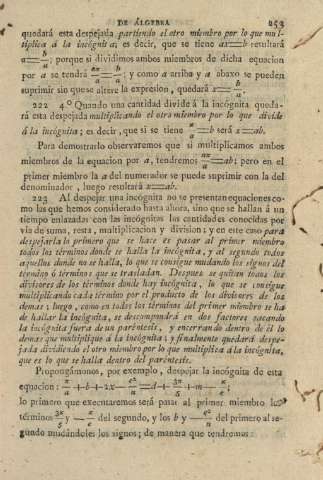 DE ÁLGEBRA 253
quedará esta despejada partiendo el otro miembro por lo que mul-
tiplica á la incógnita; es decir, que se tiene ax=b resultará
a=b/a; porque si dividimos ambos miembros de dicha equacion
por a se tendrá ax/a=b/a; y como a arriba y a abaxo se pueden
suprimir sin que se altere la expresion, quedará x=b/a.
222 4.º Quando una cantidad divide á la incógnita queda-
rá esta despejada multiplicando el otro miembro por lo que divide
á la incógnita; es decir, que si se tiene x/a=b será x=ab.
Para demostrarlo observaremos que si multiplicamos ambos
miembros de la equacion por a, tendremos ax/a=ab; pero en el
primer miembro la a del numerador se puede suprimir con la del
denominador, luego resultará x=ab.
223 Al despejar una incógnita no se presentan equaciones co-
mo las que hemos considerado hasta ahora, sino que se hallan á un
tiempo enlazadas con las incógnitas las cantidades conocidas por
via de suma, resta, multiplicacion y division; y en este caso para
despejarla lo primero que se hace es pasar al primer miembro
todos los términos donde se halla la incógnita, y al segundo todos
aquellos donde no se halla, lo que se consigue mudando los signos del
término ó términos que se trasladan. Despues se quitan todos los
divisores de los términos donde hay incógnita, lo que se consigue
multiplicando cada término por el producto de los divisores de los
demas; luego, como en todos los términos del primer miembro se ha
de hallar la incógnita, se descompondrá en dos factores sacando
la incógnita fuera de un paréntesis, y encerrando dentro de él lo
demas que multiplique á la incógnita; y finalmente quedará despe-
jada dividiendo el otro miembro por lo que multiplica á la incógnita,
que es lo que se halla dentro del paréntesis.
Propongámonos, por exemplo, despejar la incógnita de esta
equacion:
lo primero que executaremos será pasar al primer miembro los
términos del segundo, y los b y del primero al se-
gundo mudándoles los signos; de manera que tendremos